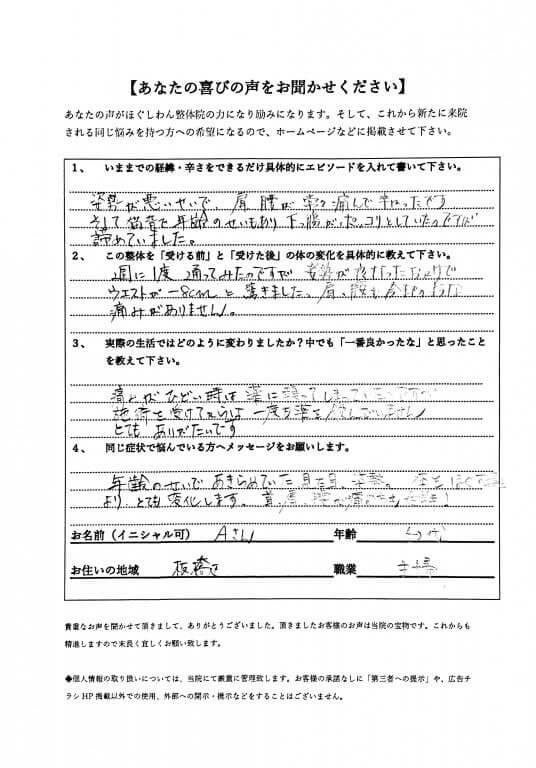 【あなたの喜びの声をお聞かせください】
あなたの声がほぐしわん整体院の力になり励みになります。そして、これから新たに来院
される同じ悩みを持つ方への希望になるので、ホームページなどに掲載させて下さい。
1、 いままでの経緯・辛さをできるだけ具体的にエピソードを入れて書いて下さい。
姿勢が悪いせいで、肩、腰が常に痛んで辛かったです
そして猫背と年齢のせいもあり 下っ腹がポッコリとしていたのですが
諦めていました。
2、 この整体を「受ける前」と「受けた後」の体の変化を具体的に教えて下さい。
週に1度 通ってみたのですが 姿勢が良くなっただけで
ウエストが -8cm と 驚きました。肩、腰も 今までのような
痛みがありません。
3、 実際の生活ではどのように変わりましたか？中でも「一番良かったな」と思ったこと
を教えて下さい。
痛みがひどい時は 薬に頼ってしまっていたのですが
施術を受けてからは 一度も薬を飲んでいません
とても ありがたいです
4、 同じ症状で悩んでいる方へメッセージをお願いします。
年齢のせいで あきらめていた
より とても 変化します。
お名前（イニシャル可） Aさん 年齢
お住いの地域 板橋区 職業 主婦
貴重なお声を聞かせて頂きまして、ありがとうございました。頂きましたお客様のお声は当院の宝物です。これからも
精進しますので末長く宜しくお願い致します。
◆個人情報の取り扱いについては、当院にて厳重に管理致します。お客様の承諾なしに「第三者への提示」や、広告チ
ラシHP掲載以外での使用、外部への開示・提示などをすることはございません。